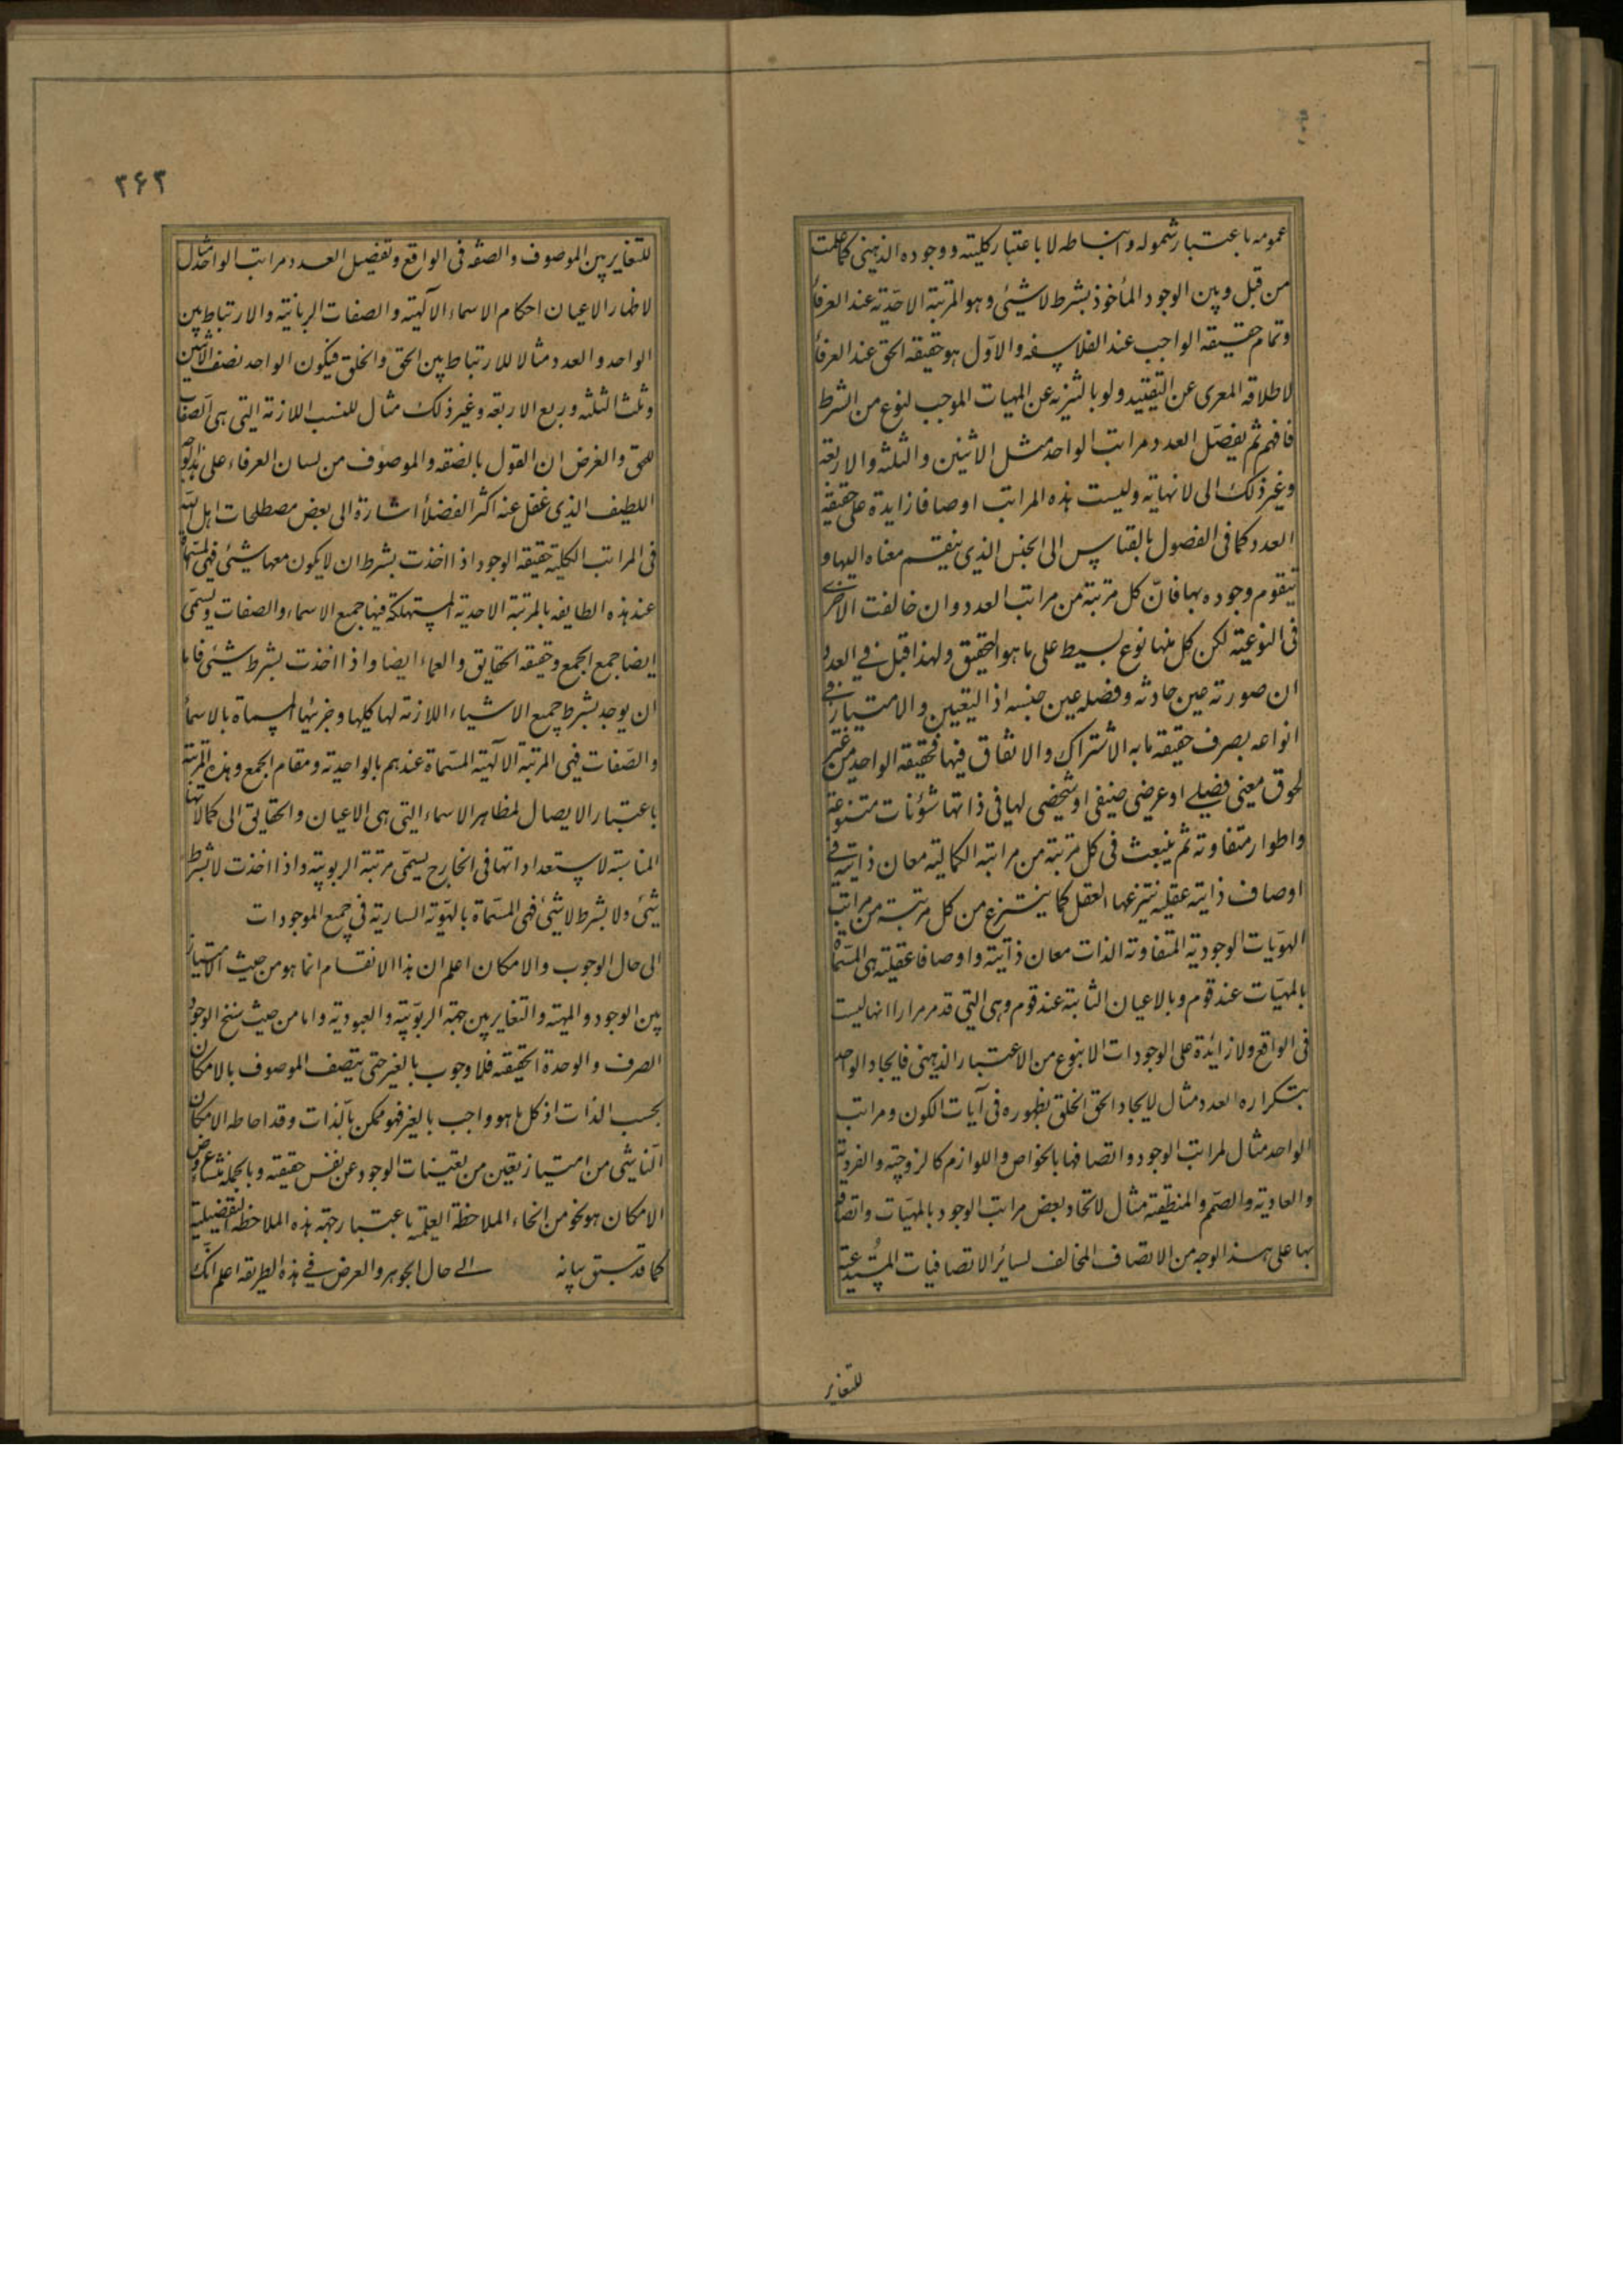 عمومه باعتبار شموله وانبساطه لا باعتبار كليته ووجوده الذهنى كما علمت
من قبل وبين الوجود المأخوذ بشرط لا شيئى وهو المرتبة الاحدية عند العرفاء
وتمام حقيقه الواجب عند الفلاسفه والاوّل هو حقيقه الحق عند العرفاء
لاطلاقه المعرى عن التقييد ولو بالتنزيه عن المهيات الموجب لنوع من الشرط
فافهم ثم يفصّل العدد مراتب الواحد مثل الاثنين والثلثه والاربعة
وغير ذلك الى لا نهاية وليست هذه المراتب اوصافا زايدة على حقيقة
العدد كما فى الفصول بالقياس الى الجنس الذي ينقسم معناه اليها و
يتقوم وجوده بها فانّ كل مرتبة من مراتب العدد وان خالفت الاخرى
فى النوعية لكن كل منها نوع بسيط على ما هو التحقيق ولهذا قيل في العدد
ان صورته عين مادته وفصله عين جنسه اذ التعين والامتياز في
انواعه بصرف حقيقه ما به الاشتراك والاتفاق فيها فحقيقه الواحد من غير
لحوق معنى فصلي او عرضى صنفى او شخصى لها فى ذاتها شؤنات متنوعة
واطوار متفاوته ثم ينبعث فى كل مرتبة من مراتبه الكمالية معان ذاتية في
اوصاف ذاتيه عقليه ينتزعها العقل كما ينتزع من كل مرتبة من مراتب
الهويّات الوجودية المتفاوته الذات معان ذاتية واوصافا عقلية هى المسمّاة
بالمهيّات عند قوم وبالاعيان الثابتة عند قوم وهى التي قد مر مرارا انها ليست
فى الواقع ولا زائدة على الوجودات الا بنوع من الاعتبار الذهنى فايجاد الواحد
بتكراره العدد مثال لايجاد الحق الخلق بظهوره فى آيات الكون ومراتب
الواحد مثال لمراتب الوجود واتصافها بالخواص واللوازم كالزوجية والفردية
والعادية والصّمم والمنطقية مثال لاتحاد بعض مراتب الوجود بالمهيّات واتصافه
بها على هذا الوجه من الاتصاف المخالف لسائر الاتصافيات المستدعية
للتغاير
٣۶٢
للتغاير بين الموصوف والصفه فى الواقع وتفصيل العدد مراتب الواحد مثال
لاظهار الاعيان احكام الاسماء الآلهية والصفات الربانية والارتباط بين
الواحد والعدد مثالا للارتباط بين الحق والخلق فيكون الواحد نصف الاثنين
وثلث الثلثه وربع الاربعة وغير ذلك مثال للنسب اللازمة التي هى الصفات
للحق والغرض ان القول بالصفه والموصوف من لسان العرفاء على هذا الوجه
اللطيف الذي غفل عنه اكثر الفضلاء اشارة الى بعض مصطلحات اهل الله
فى المراتب الكلية حقيقه الوجود اذا اخذت بشرط ان لا يكون معها شيئى فهى المسمّاة
عند هذه الطايفه بالمرتبة الاحدية المستهلكة فيها جميع الاسماء والصفات ويسمّى
ايضا جمع الجمع وحقيقه الحقايق والعماء ايضا واذا اخذت بشرط شيئى فاما
ان يوجد بشرط جميع الاشياء اللازمه لها كليها وجزئيها المسماة بالاسماء
والصّفات فهى المرتبة الآلهية المسّماة عندهم بالواحدية ومقام الجمع وهذه المرتبة
باعتبار الايصال لمظاهر الاسماء التي هى الاعيان والحقايق الى كمالاتها
المناسبة لاستعداداتها فى الخارج يسمّى مرتبة الربوبية واذا اخذت لا بشرط
شيئى ولا بشرط لا شيئى فهى المسّماة بالهويّه السارية فى جميع الموجودات
الى حال الوجوب والامكان اعلم ان هذا الانقسام انما هو من حيث الامتياز
بين الوجود والمهيّة والتغاير بين جهة الربوبيّة والعبودية واما من حيث سنخ الوجود
الصرف والوحدة الحقيقه فلا وجوب بالغير حتى يتصف الموصوف بالامكان
بحسب الذات اذ كل ما هو واجب بالغير فهو ممكن بالّذات وقد احاطه الامكان
النّاشى من امتياز تعين من تعينات الوجود عن نفس حقيقته وبالجملة منشاء عروض
الامكان هو نحو من انحاء الملاحظة العلمية باعتبار جهة هذه الملاحظه التفضيلية
كما قد سبق بيانه الى حال الجوهر والعرض في هذه الطريقه اعلم انّك